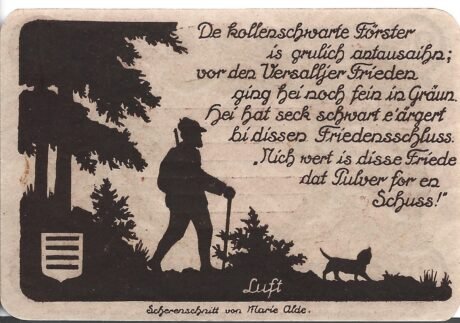 De kollenschwarte Förster
is grulich antausaihn;
vor den Versalljer Frieden
ging hei noch fein in Gräun.
Hei hat seck schwart e'ärgert
bi dissen Friedensschluss.
„Nich wert is disse Friede
dat Pulver for en
Schuss!"
Luft
Scherenschnitt von Marie Alde.